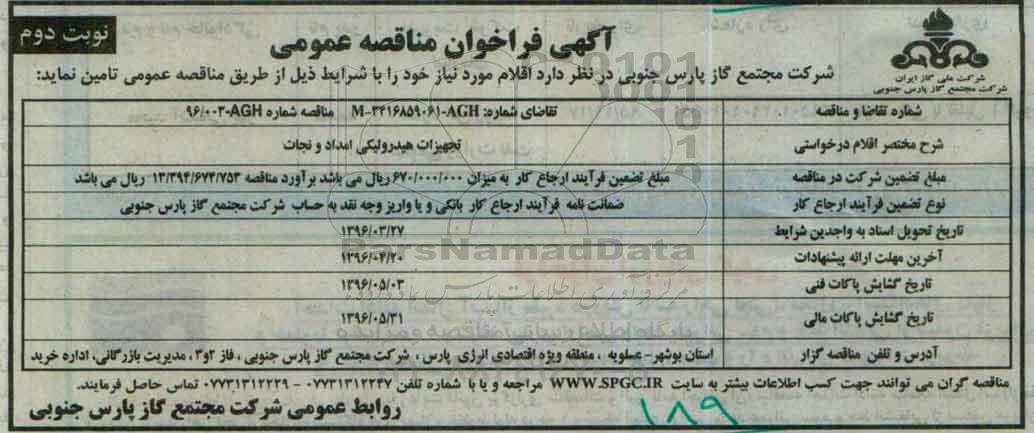 نوبت دوم
آگهی فراخوان مناقصه عمومی
شرکت ملی گاز ایران
شرکت مجتمع گاز پارس جنوبی
شرکت مجتمع گاز پارس جنوبی در نظر دارد اقلام مورد نیاز خود را با شرایط ذیل از طریق مناقصه عمومی تامین نماید:
شماره تقاضا و مناقصه تقاضای شماره: M-۳۴۱۶۸۵۹۰۶۱-AGH مناقصه شماره ۹۶/۰۰۳-AGH
شرح مختصر اقلام درخواستی تجهیزات هیدرولیکی امداد و نجات
مبلغ تضمین شرکت در مناقصه مبلغ تضمین فرآیند ارجاع کار به میزان ۶۷۰/۰۰۰/۰۰۰ ریال می باشد برآورد مناقصه ۱۳/۳۹۴/۶۷۴/۷۵۳ ریال می باشد
نوع تضمین فرآیند ارجاع کار ضمانت نامه فرآیند ارجاع کار بانکی و یا واریز وجه نقد به حساب شرکت مجتمع گاز پارس جنوبی
تاریخ تحویل اسناد به واجدین شرایط ۱۳۹۶/۰۳/۲۷
آخرین مهلت ارائه پیشنهادات ۱۳۹۶/۰۴/۲۰
تاریخ گشایش پاکات فنی ۱۳۹۶/۰۵/۰۳
تاریخ گشایش پاکات مالی ۱۳۹۶/۰۵/۳۱
آدرس و تلفن مناقصه گزار استان بوشهر- عسلویه ، منطقه ویژه اقتصادی انرژی پارس ، شرکت مجتمع گاز پارس جنوبی ، فاز ۲و۳ ، مدیریت بازرگانی، اداره خرید
مناقصه گران می توانند جهت کسب اطلاعات بیشتر به سایت WWW.SPGC.IR مراجعه و یا با شماره تلفن ۰۷۷۳۱۳۱۲۲۴۷ - ۰۷۷۳۱۳۱۲۲۲۹ تماس حاصل فرمایند.
روابط عمومی شرکت مجتمع گاز پارس جنوبی
۱۸۹
ParsNamadData